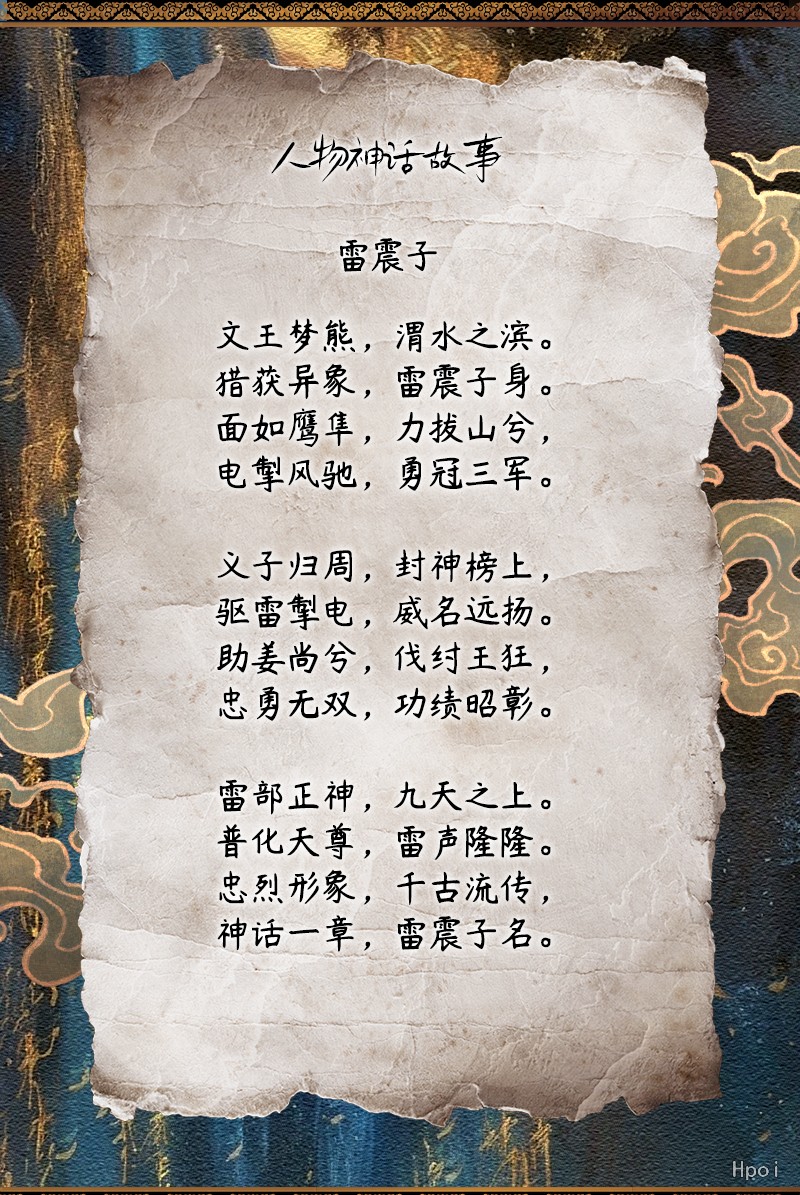 人物神话故事
雷震子
文王梦熊，渭水之滨。
猎获异象，雷震子身。
面如鹰隼，力拔山兮，
电掣风驰，勇冠三军。
义子归周，封神榜上，
驱雷掣电，威名远扬。
助姜尚兮，伐纣王狂，
忠勇无双，功绩昭彰。
雷部正神，九天之上。
普化天尊，雷声隆隆。
忠烈形象，千古流传，
神话一章，雷震子名。
Hpoi